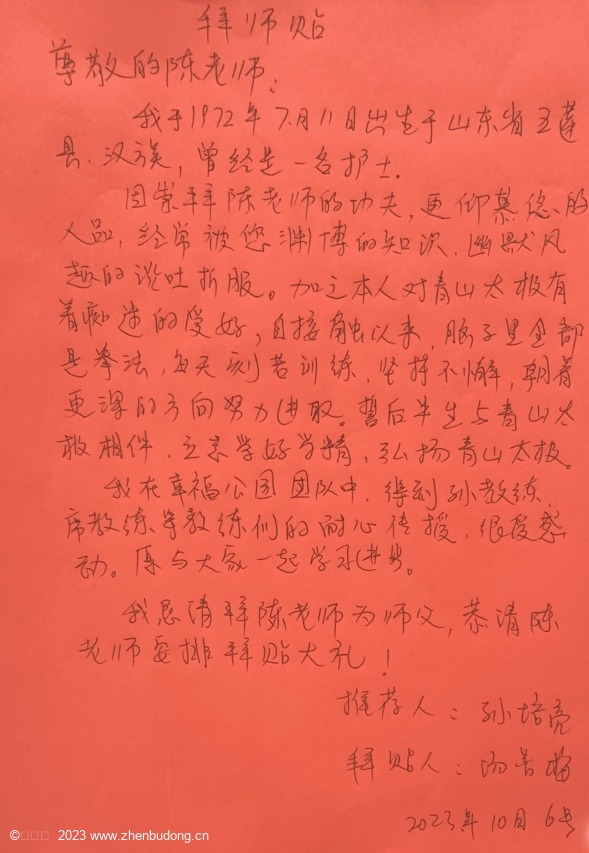 拜师贴
尊敬的陈老师:
我于1972年7月11日出生于山东省五莲
县.汉族,曾经是一名护士.
因崇拜陈老师的功夫,更仰慕您的
人品,经常被您渊博的知识.幽默风
趣的谈吐折服。加之本人对青山太极有
着痴迷的爱好,自接触以来,脑子里全部
是拳法,每天刻苦训练,坚持不懈,朝着
更深的方向努力进取。誓后半生与青山太
极相伴.立志学好学精,弘扬青山太极。
我在幸福公园团队中.得到孙教练.
席教练等教练们的耐心传授,很受感
动。愿与大家一起学习进步。
我恳请拜陈老师为师父,恭请陈
老师安排拜贴大礼!
推荐人:孙培亮
拜贴人:
2023年10月6号
© 2023 www.zhenbudong.cn